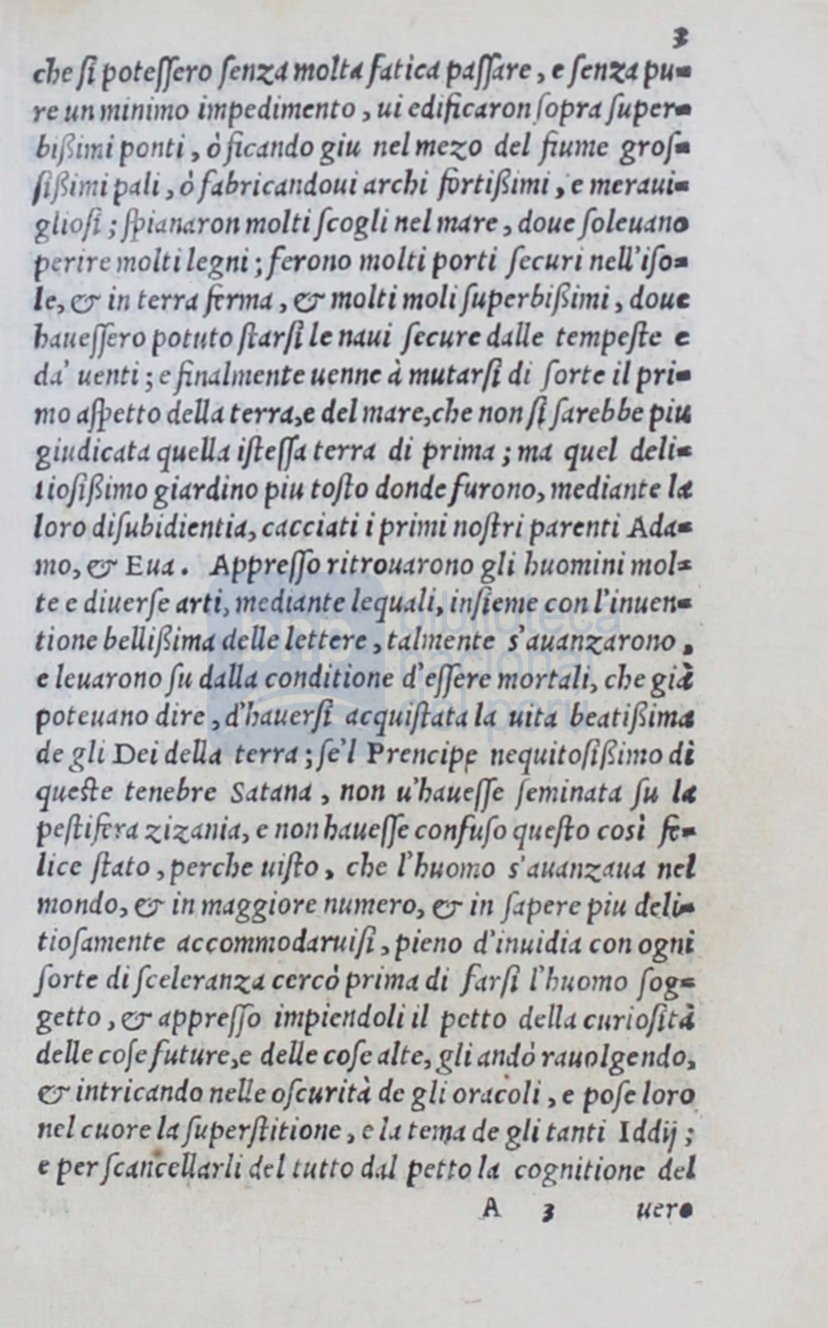 3
che ſi poteſſero ſenza molta fatica paſſare, e ſenza pu-
re un minimo impedimento, ui edificaron ſopra ſuper-
bißimi ponti, ò ficando giu nel mezo del fiume groſ-
ſißimi pali, ò fabricandoui archi fortißimi, e meraui-
glioſi; ſpianaron molti ſcogli nel mare, doue ſoleuano
perire molti legni; ferono molti porti ſecuri nell'iſo-
le, & in terra ferma, & molti moli ſuperbißimi, doue
haueſſero potuto ſtarſi le naui ſecure dalle tempeſte e
da' uenti; e finalmente uenne à mutarſi di ſorte il pri-
mo aſpetto della terra, e del mare, che non ſi ſarebbe piu
giudicata quella iſteſſa terra di prima; ma quel deli-
tioſißimo giardino piu toſto donde furono, mediante la
loro diſubidientia, cacciati i primi noſtri parenti Ada-
mo, & Eua. Appreſſo ritrouarono gli huomini mol-
te e diuerſe arti, mediante lequali, inſieme con l'inuen-
tione bellißima delle lettere, talmente s'auanzarono,
e leuarono ſu dalla conditione d'eſſere mortali, che già
poteuano dire, d'hauerſi acquiſtata la uita beatißima
de gli Dei della terra; ſe'l Prencipe nequitoſißimo di
queſte tenebre Satana, non u'haueſſe ſeminata ſu la
peſtifera zizania, e non haueſſe confuſo queſto così fe-
lice ſtato, perche uiſto, che l'huomo s'auanzaua nel
mondo, & in maggiore numero, & in ſapere piu deli-
tioſamente accommodaruiſi, pieno d'inuidia con ogni
ſorte di ſceleranza cercò prima di farſi l'huomo ſog-
getto, & appreſſo impiendoli il petto della curioſità
delle coſe future, e delle coſe alte, gli andò rauolgendo,
& intricando nelle oſcurità de gli oracoli, e poſe loro
nel cuore la ſuperſtitione, e la tema de gli tanti Iddij;
e per ſcancellarli del tutto dal petto la cognitione del
A 3 uero
bnp biblioteca
nacional
del perú